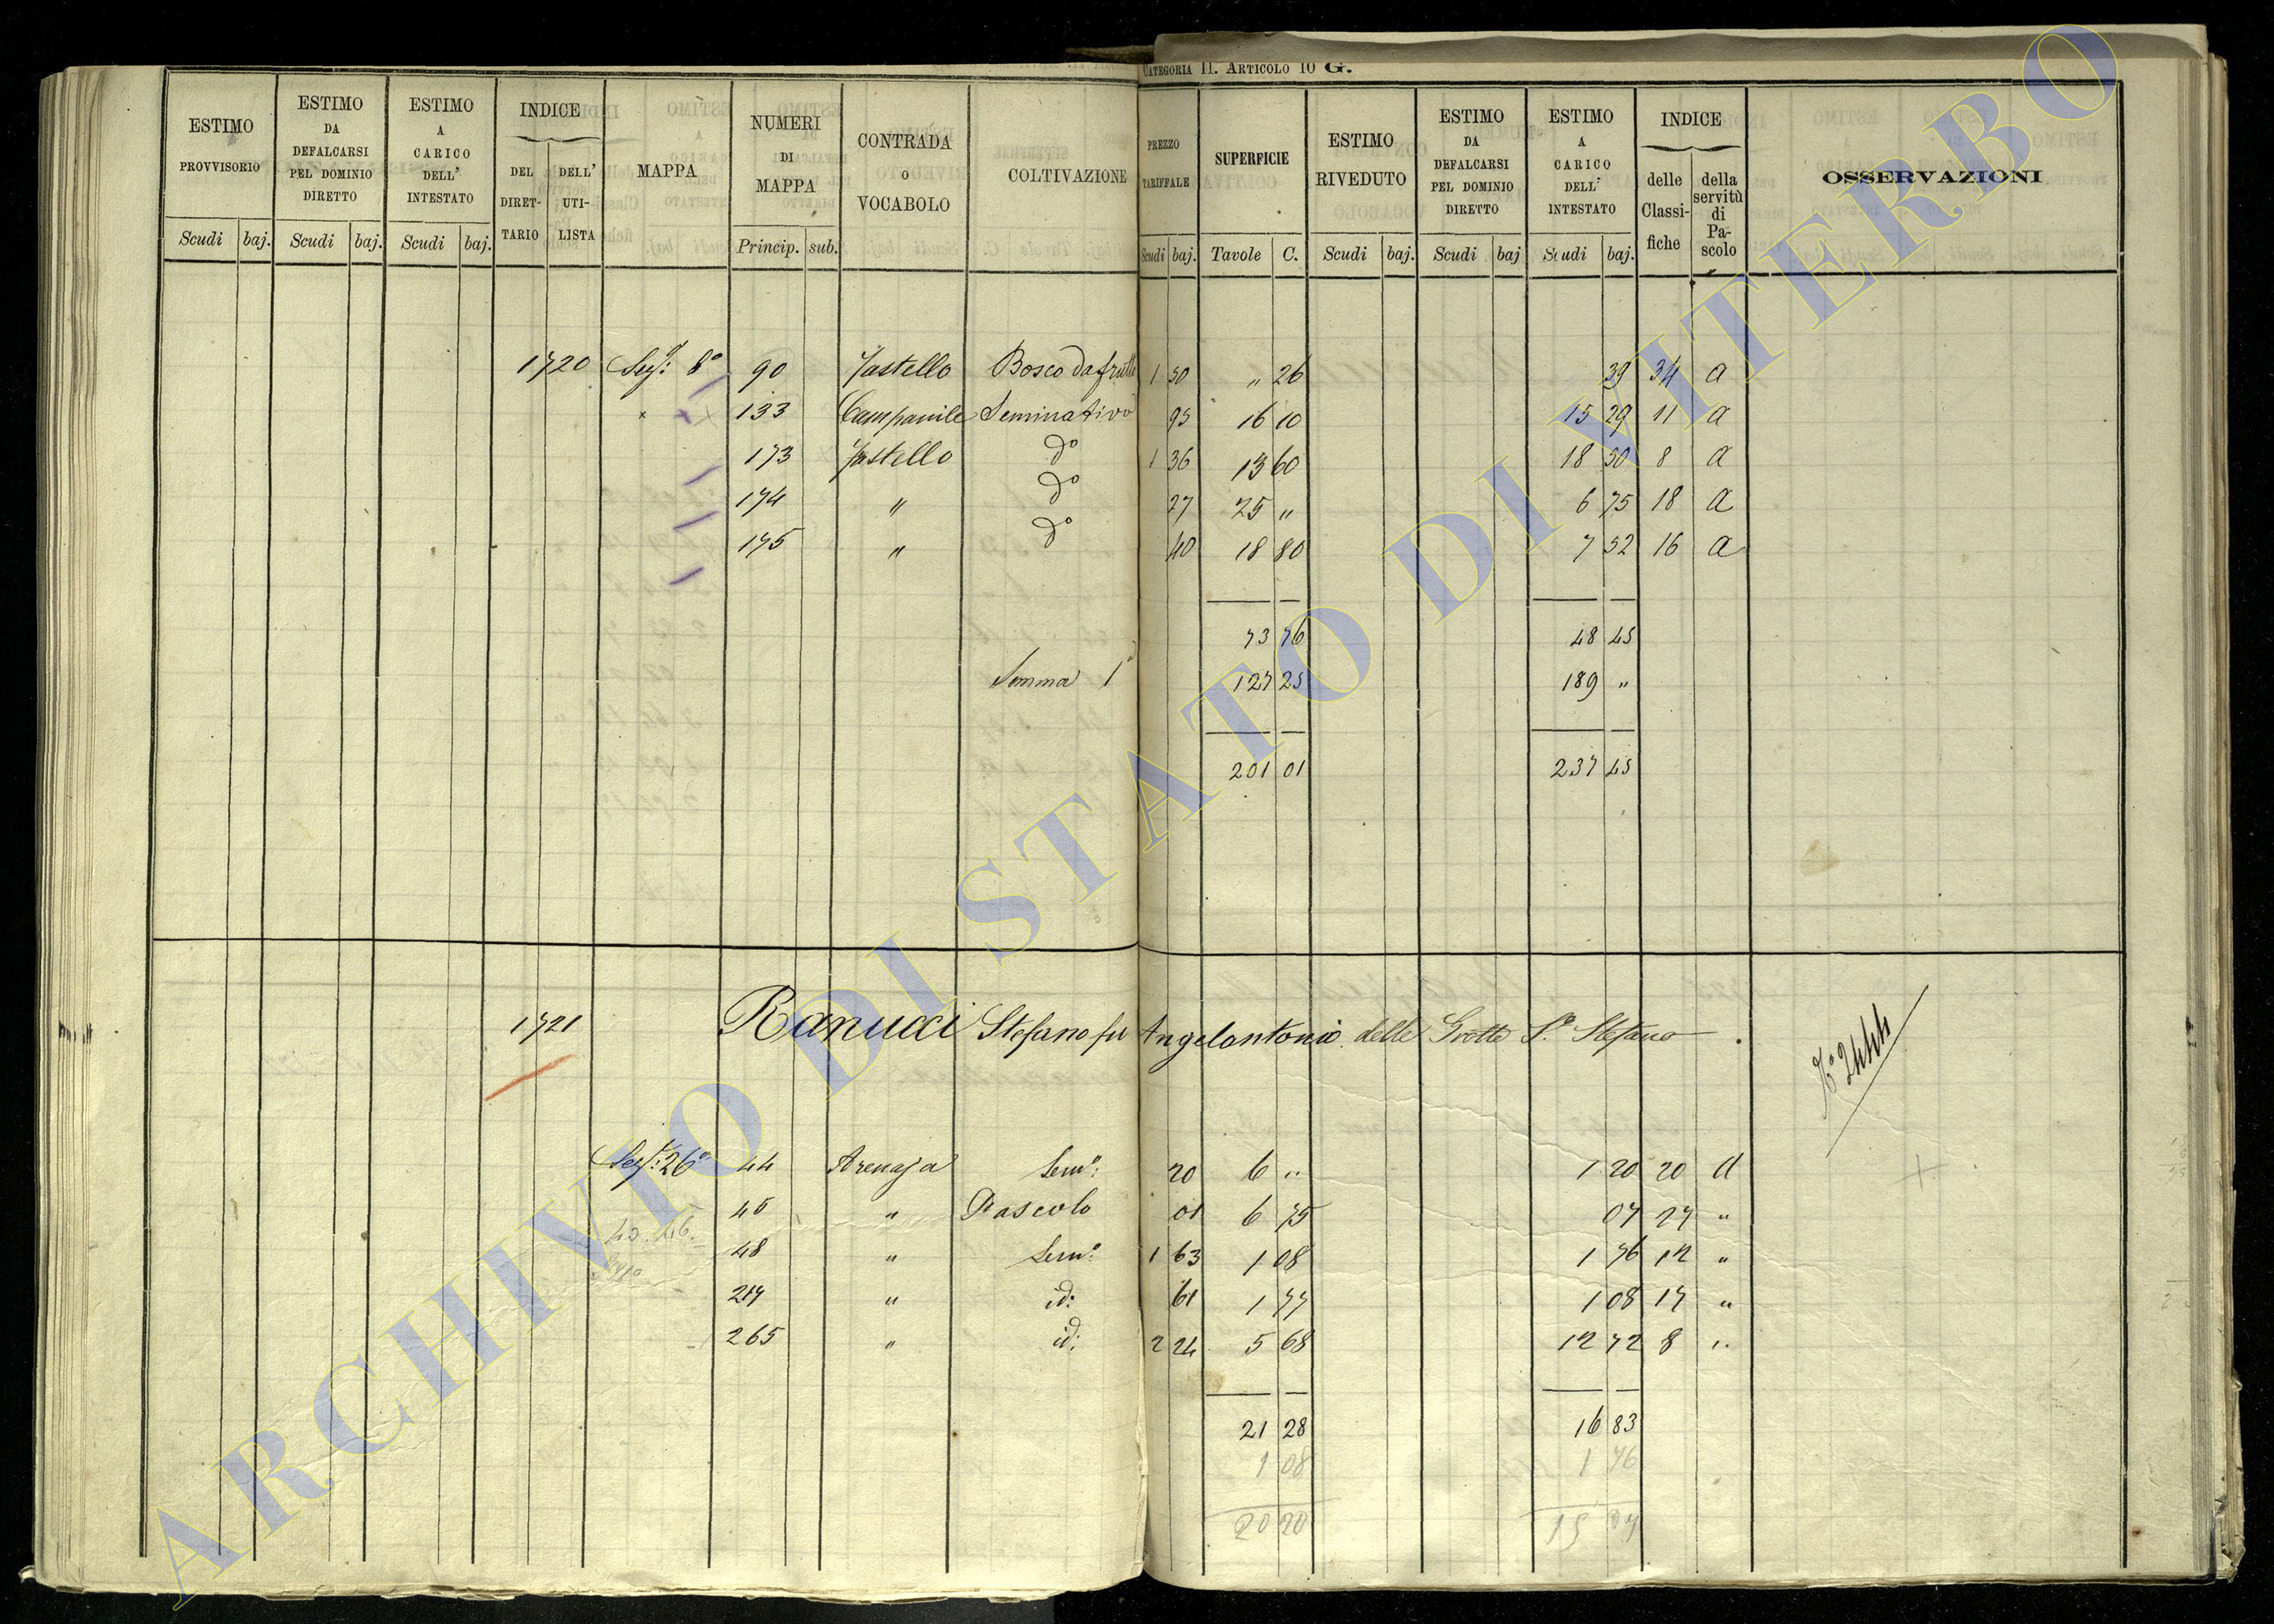 CATEGORIA II. ARTICOLO 10 G.
ESTIMO PROVVISORIO Scudi baj.
ESTIMO DA DEFALCARSI PEL DOMINIO DIRETTO Scudi baj.
ESTIMO A CARICO DELL' INTESTATO Scudi baj.
INDICE DEL DIRETTARIO DELL' UTILISTA
MAPPA
NUMERI DI MAPPA Princip. sub.
CONTRADA O VOCABOLO
COLTIVAZIONE
PREZZO TARIFFALE Scudi baj.
SUPERFICIE Tavole C.
ESTIMO RIVEDUTO Scudi baj.
ESTIMO DA DEFALCARSI PEL DOMINIO DIRETTO Scudi baj
ESTIMO A CARICO DELL' INTESTATO Scudi baj.
INDICE delle Classifiche della servitù di Pascolo
OSSERVAZIONI
1720 Sez: 8ª 90 Jastello Bosco da frutto 1 50 " 26 39 34 a
133 Campanile Seminativo 95 16 10 15 29 11 a
173 Jastello dº 1 36 13 60 18 50 8 a
174 " dº 27 25 " 6 75 18 a
175 " dº 40 18 80 7 52 16 a
73 76 48 45
Somma 1ª 127 25 189 "
201 01 237 45
1721 Ranucci Stefano fu Angelantonio delle Grotte S. Stefano
Nº 2444
Sez: 26ª 44 Arenaja Semº: 20 6 " 1 20 20 a
45 " Pascolo 01 6 75 07 27 "
48 " Semº: 1 63 1 08 1 76 12 "
217 " id: 61 1 77 1 08 17 "
265 " id: 2 24 5 68 12 72 8 "
21 28 16 83
1 08 1 76
20 20 15 07
ARCHIVIO DI STATO DI VITERBO